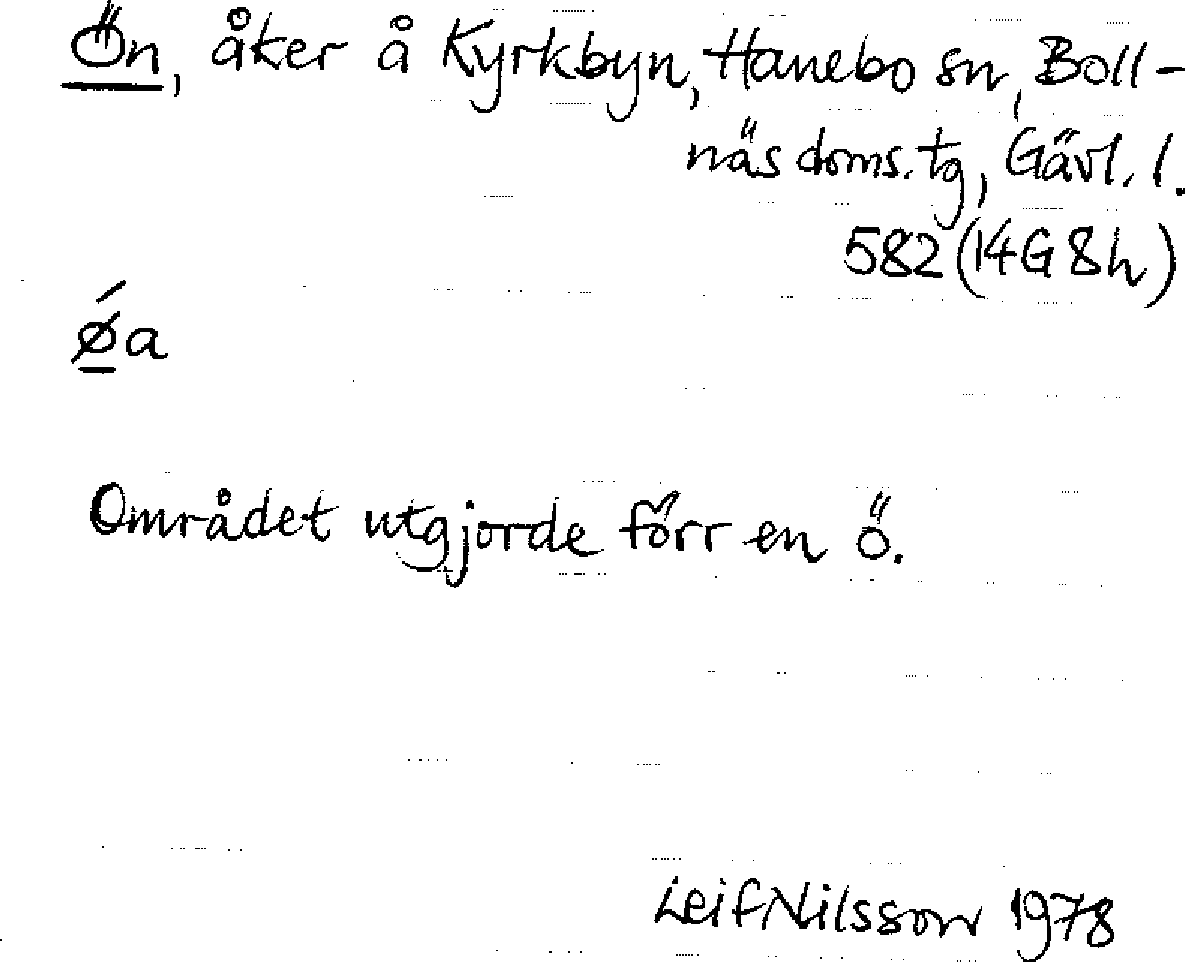 Ön, åker å Kyrkbyn, Hanebo sn, Boll-
näs doms.tg, Gävl. l.
582 (14G 8h)
ǿ̲a
Området utgjorde förr en ö.
Leif Nilsson 1978